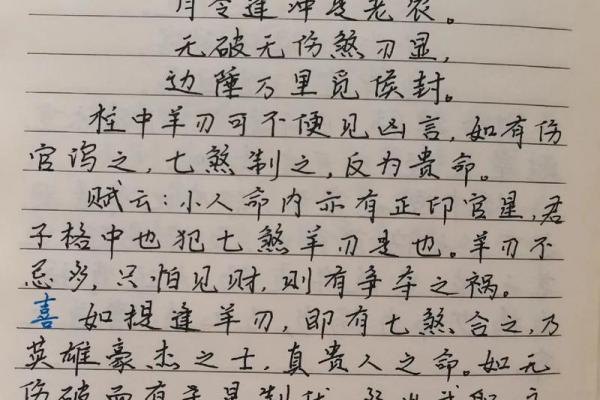 月令逢冲是老农。
无破无伤煞刃显,
边陲万里觅侯封。
柱中羊刃可不便见凶言,如有伤
官泻之,七煞制之,反为贵命。
赋云:小人命内亦有正印官星,君
子格中也犯七煞羊刃是也。羊刃不
忌多,只怕见财,则有争夺之祸。
喜 如提逢羊刃,即有七煞合之,乃
英雄豪杰之士,真贵人之命。如无
伤破而有